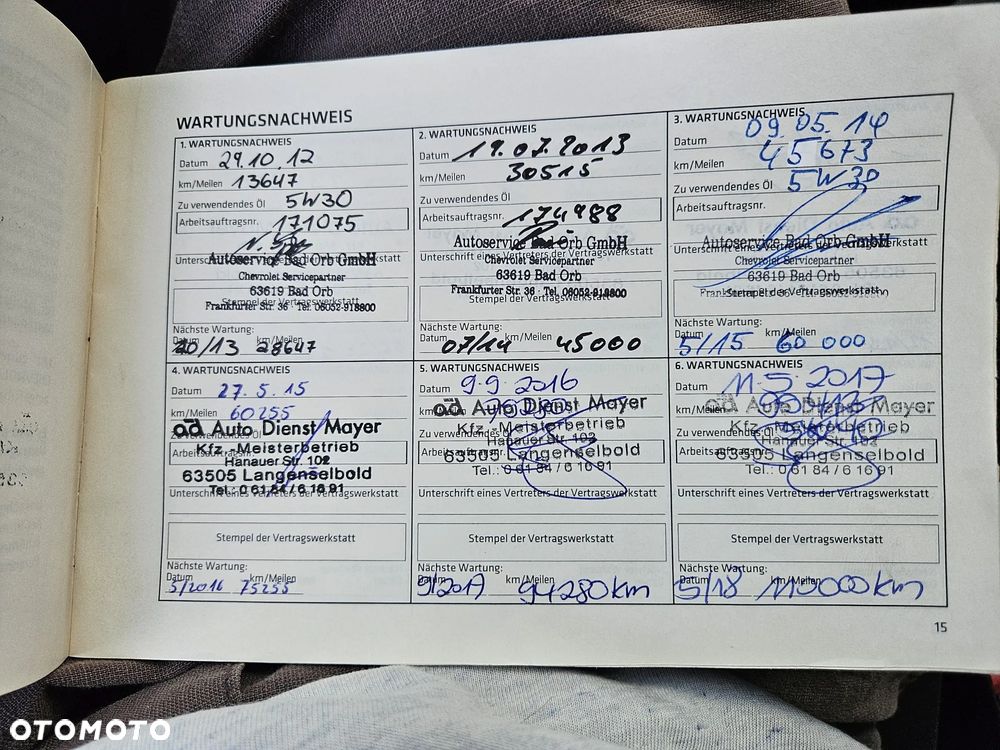 WARTUNGSNACHWEIS
1. WARTUNGSNACHWEIS
Datum 29.10.12
km/Meilen 13647
Zu verwendendes Öl 5W30
Arbeitsauftragsnr. 171075
Autoservice Bad Orb GmbH
Chevrolet Servicepartner
63619 Bad Orb
Frankfurter Str. 36 · Tel. 06052-918800
Stempel der Vertragswerkstatt
Nächste Wartung:
Datum km/Meilen
10/13 28647
2. WARTUNGSNACHWEIS
Datum 19.07.2013
km/Meilen 30515
Zu verwendendes Öl
Arbeitsauftragsnr. 174988
Autoservice Bad Orb GmbH
Unterschrift eines Vertreters der Vertragswerkstatt
Chevrolet Servicepartner
63619 Bad Orb
Frankfurter Str. 36 · Tel. 06052-918800
Stempel der Vertragswerkstatt
Nächste Wartung:
Datum km/Meilen
07/14 45000
3. WARTUNGSNACHWEIS
Datum 09.05.14
km/Meilen 45673
Zu verwendendes Öl 5W30
Arbeitsauftragsnr.
Autoservice Bad Orb GmbH
Unterschrift eines Vertreters der Vertragswerkstatt
Chevrolet Servicepartner
63619 Bad Orb
Stempel der Vertragswerkstatt
Nächste Wartung:
Datum km/Meilen
5/15 60 000
4. WARTUNGSNACHWEIS
Datum 27.5.15
km/Meilen 60255
ad Auto Dienst Mayer
Zu verwendendes Öl
Kfz.-Meisterbetrieb
Arbeitsauftragsnr.
Hanauer Str. 102
63505 Langenselbold
Tel.: 0 61 84 / 6 16 91
Unterschrift eines Vertreters der Vertragswerkstatt
Stempel der Vertragswerkstatt
Nächste Wartung:
Datum km/Meilen
5/2016 75255
5. WARTUNGSNACHWEIS
Datum 9.9.2016
km/Meilen
ad Auto Dienst Mayer
Kfz.-Meisterbetrieb
Zu verwendendes Öl
Hanauer Str. 102
Arbeitsauftragsnr.
63505 Langenselbold
Tel.: 0 61 84 / 6 16 91
Unterschrift eines Vertreters der Vertragswerkstatt
Stempel der Vertragswerkstatt
Nächste Wartung:
Datum km/Meilen
9/2017 94280km
6. WARTUNGSNACHWEIS
Datum 11.5.2017
km/Meilen
ad Auto Dienst Mayer
Kfz.-Meisterbetrieb
Zu verwendendes Öl
Hanauer Str. 102
Arbeitsauftragsnr.
63505 Langenselbold
Tel.: 0 61 84 / 6 16 91
Unterschrift eines Vertreters der Vertragswerkstatt
Stempel der Vertragswerkstatt
Nächste Wartung:
Datum km/Meilen
5/18 110000km
15
OTOMOTO